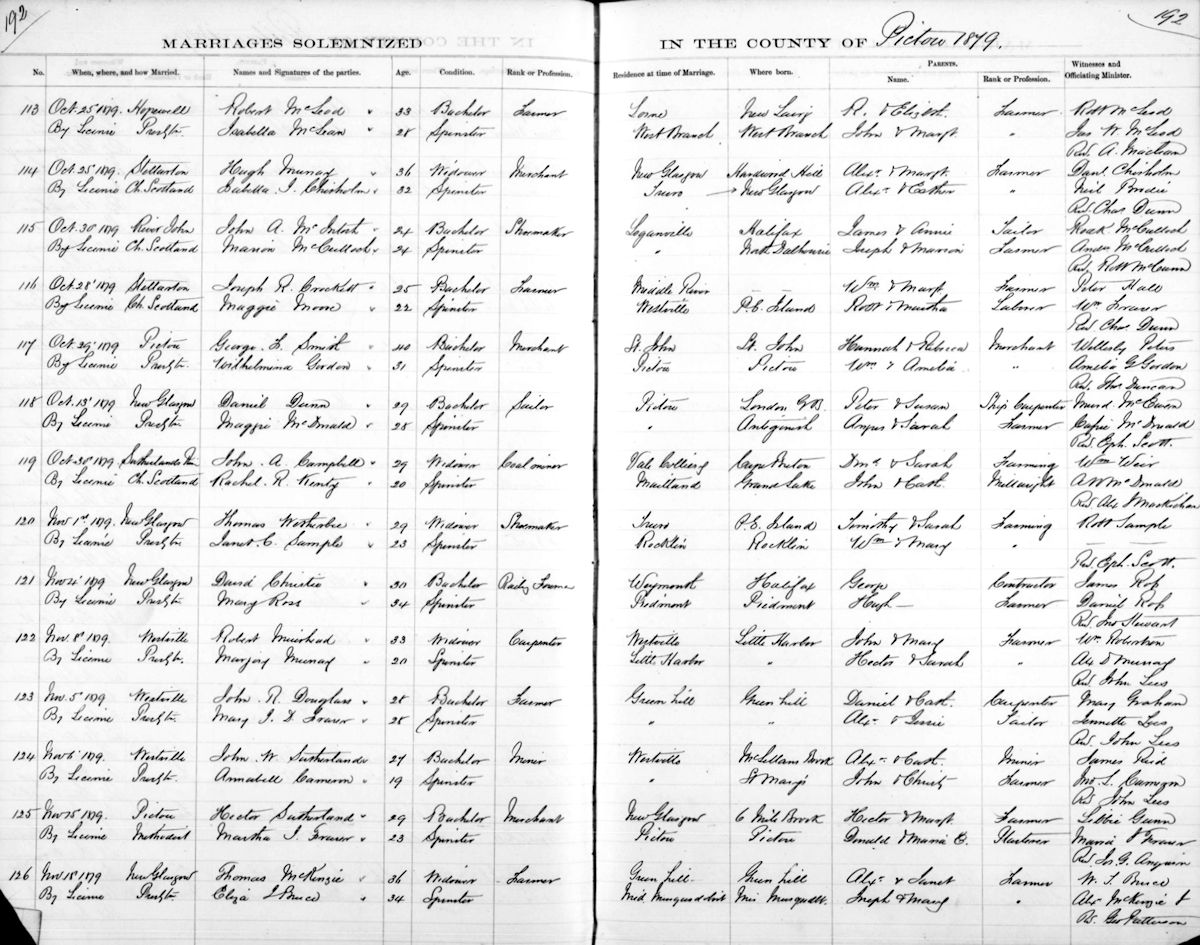 192
192
MARRIAGES SOLEMNIZED IN THE COUNTY OF Pictou 1879.
No. When, where, and how Married. Names and Signatures of the parties. Age. Condition. Rank or Profession. Residence at time of Marriage. Where born. PARENTS. Name. Rank or Profession. Witnesses and Officiating Minister.
113 Oct. 25' 1879. Hopewell Robert McLeod " 33 Bachelor Farmer Lorne New Lairg R. & Elizbt. Farmer Robt McLeod
By Licence Presbtr. Isabella McLean " 28 Spinster West Branch West Branch John & Margt " Jas W. McLeod
Rev. A. Maclean
114 Oct. 25' 1879 Stellarton Hugh Murray " 36 Widower Merchant New Glasgow Hardwood Hill Alexr & Margt. Farmer Danl. Chisholm
By Licence Ch. Scotland Isabella J. Chisholm " 32 Spinster Truro New Glasgow Alexr & Esther " Neil Brodie
Rev. Chas Dunn
115 Oct. 30' 1879 River John John A. McIntosh " 24 Bachelor Shoemaker Loganville Halifax James & Annie Tailor McCulloch
By Licence Ch. Scotland Marion McCulloch " 24 Spinster " North Dalhousie Joseph & Marion Farmer Andw McCulloch
Rev. Robt McCunn
116 Oct. 28' 1879 Stellarton Joseph R. Crockett " 25 Bachelor Farmer Middle River Wm. & Margt Farmer Peter Hall
By Licence Ch. Scotland Maggie Moore " 22 Spinster Westville P.E. Island Robt & Martha Laborer Wm Fraser
Rev. Chas. Dunn
117 Oct. 29' 1879 Pictou George L. Smith " 40 Bachelor Merchant St. John St. John Hannah & Rebecca Merchant Wellesley Peters
By Licence Presbtr. Wilhelmina Gordon " 31 Spinster Pictou Pictou Wm & Amelia " Amelia G Gordon
Rev. Thos Duncan
118 Oct. 13' 1879 New Glasgow Daniel Dunn " 29 Bachelor Sailor Pictou London G.B. Peter & Susan Ship Carpenter Murd. McEwen
By Licence Presbtr. Maggie McDonald " 28 Spinster " Antigonish Angus & Sarah Farmer McDonald
Rev. Eph. Scott.
119 Oct. 30' 1879 Sutherlands River John A. Campbell " 29 Widower Coal miner Vale Colliery Cape Breton & Sarah Farming Wm Weir
By Licence Ch. Scotland Rachel R. Kenty " 20 Spinster Maitland Grand Lake John & Cath. Millwright A W McDonald
Rev. Alex Mackichan
120 Nov. 1st 1879. New Glasgow Thomas Wetherbie " 29 Widower Shoemaker Truro P.E. Island Timothy & Sarah Farming Robt Sample
By Licence Presbtr. Janet C. Sample " 23 Spinster Rocklin Rocklin Wm & Mary "
Rev. Eph. Scott.
121 Nov 4' 1879 New Glasgow David Christie " 30 Bachelor Railwy Foreman Weymouth Halifax George Contractor James Ross
By Licence Presbtr. Mary Ross " 34 Spinster Piedmont Piedmont Hugh — Farmer Daniel Ross
Rev. Jno Stewart
122 Nov. 8' 1879. Westville Robert Muirhead " 33 Widower Carpenter Westville Little Harbor John & Mary Farmer Wm. Robertson
By Licence Presbtr. Marjory Murray " 20 Spinster Little Harbor " Hector & Sarah " Alex D Murray
Rev. John Lees
123 Nov. 5' 1879. Westville John R. Douglass " 28 Bachelor Farmer Green hill Green hill Daniel & Cath. Carpenter Mary Graham
By Licence Presbtr. Mary J. D. Fraser " 28 Spinster " " Alexr & Jessie Tailor Jennette Lees
Rev. John Lees
124 Nov 6' 1879. Westville John W. Sutherland " 27 Bachelor Miner Westville McLellans Brook Alexr & Cath. Miner James Reid
By Licence Presbtr. Annabell Cameron " 19 Spinster " St Marys John & Christy Farmer Jno L. Cameron
Rev. John Lees
125 Nov 15' 1879. Pictou Hector Sutherland " 29 Bachelor Merchant New Glasgow 6 Mile Brook Hector & Margt Farmer Libbie Gunn
By Licence Methodist Martha J. Fraser " 23 Spinster Pictou Pictou Donald & Maria C. Plasterer Maria Fraser
Rev. Js. G. Angwin
126 Nov 18' 1879 New Glasgow Thomas McKenzie " 36 Widower Farmer Green hill Green hill Alexr & Janet Farmer W. T. Bruce
By Licence Presbtr. Eliza J. Bruce " 34 Spinster Mid Musquodoboit Mid Musquodt. Joseph & Mary " Alex McKenzie
Rv. Geo Patterson